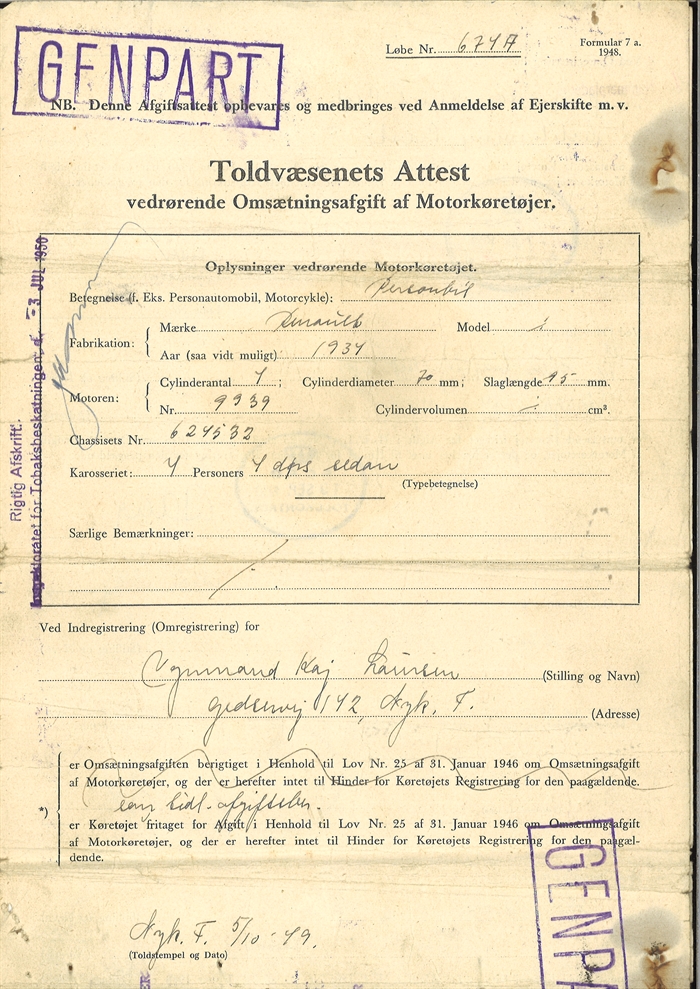 GENPART
Løbe Nr. 674A
Formular 7 a.
1948.
NB. Denne Afgiftsattest opbevares og medbringes ved Anmeldelse af Ejerskifte m. v.
Toldvæsenets Attest
vedrørende Omsætningsafgift af Motorkøretøjer.
Rigtig Afskrift.
Inspektoratet for Tobaksbeskatningen, d. -3 JUL 1950
Oplysninger vedrørende Motorkøretøjet.
Betegnelse (f. Eks. Personautomobil, Motorcykle): Personbil
Fabrikation:
Mærke Renault Model
Aar (saa vidt muligt) 1934
Motoren:
Cylinderantal 4; Cylinderdiameter 70 mm; Slaglængde 95 mm.
Nr. 9939 Cylindervolumen cm³.
Chassisets Nr. 624532
Karosseriet: 4 Personers 4 dørs sedan
(Typebetegnelse)
Særlige Bemærkninger:
Ved Indregistrering (Omregistrering) for
Kaj Laursen (Stilling og Navn)
Gedservej 142, Nyk. F. (Adresse)
er Omsætningsafgiften berigtiget i Henhold til Lov Nr. 25 af 31. Januar 1946 om Omsætningsafgift
af Motorkøretøjer, og der er herefter intet til Hinder for Køretøjets Registrering for den paagældende.
som tidl. afgiftsber.
*)
er Køretøjet fritaget for Afgift i Henhold til Lov Nr. 25 af 31. Januar 1946 om Omsætningsafgift
af Motorkøretøjer, og der er herefter intet til Hinder for Køretøjets Registrering for den paagæl-
dende.
GENPA
Nyk. F. 5/10-49.
(Toldstempel og Dato)